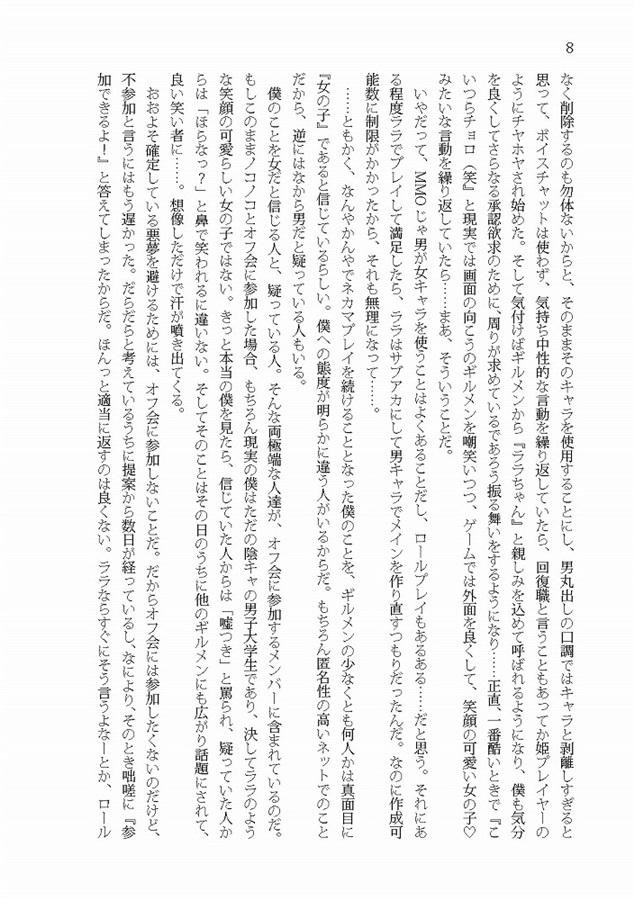 8
なく削除するのも勿体ないからと、そのままそのキャラを使用することにし、男丸出しの口調ではキャラと剥離しすぎると
思って、ボイスチャットは使わず、気持ち中性的な言動を繰り返していたら、回復職と言うこともあってか姫プレイヤーの
ようにチヤホヤされ始めた。そして気付けばギルメンから『ララちゃん』と親しみを込めて呼ばれるようになり、僕も気分
を良くしてさらなる承認欲求のために、周りが求めているであろう振る舞いをするようになり……正直、一番酷いときで『こ
いつらチョロ（笑』と現実では画面の向こうのギルメンを嘲笑いつつ、ゲームでは外面を良くして、笑顔の可愛い女の子♡
みたいな言動を繰り返していたら……まあ、そういうことだ。
いやだって、MMOじゃ男が女キャラを使うことはよくあることだし、ロールプレイもあるある……だと思う。それにあ
る程度ララでプレイして満足したら、ララはサブアカにして男キャラでメインを作り直すつもりだったんだ。なのに作成可
能数に制限がかかったから、それも無理になって……。
……ともかく、なんやかんやでネカマプレイを続けることとなった僕のことを、ギルメンの少なくとも何人かは真面目に
『女の子』であると信じているらしい。僕への態度が明らかに違う人がいるからだ。もちろん匿名性の高いネットでのこと
だから、逆にはなから男だと疑っている人もいる。
僕のことを女だと信じる人と、疑っている人。そんな両極端な人達が、オフ会に参加するメンバーに含まれているのだ。
もしこのままノコノコとオフ会に参加した場合、もちろん現実の僕はただの陰キャの男子大学生であり、決してララのよう
な笑顔の可愛らしい女の子ではない。きっと本当の僕を見たら、信じていた人からは「嘘つき」と罵られ、疑っていた人か
らは「ほらなっ？」と鼻で笑われるに違いない。そしてそのことはその日のうちに他のギルメンにも広がり話題にされて、
良い笑い者に……。想像しただけで汗が噴き出てくる。
おおよそ確定している悪夢を避けるためには、オフ会に参加しないことだ。だからオフ会には参加したくないのだけど、
不参加と言うにはもう遅かった。だらだらと考えているうちに提案から数日が経っているし、なにより、そのとき咄嗟に『参
加できるよ！』と答えてしまったからだ。ほんっと適当に返すのは良くない。ララならすぐにそう言うよなーとか、ロール